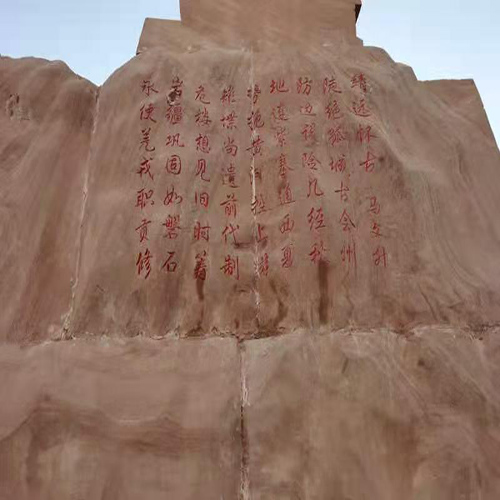 靖远怀古 马文升
陡绝孤城古会州
防边设险几经秋
地连紫塞通西夏
势绕黄河控上游
雉堞尚遗前代制
危楼想见旧时筹
岩疆巩固如磐石
永使羌戎职贡修